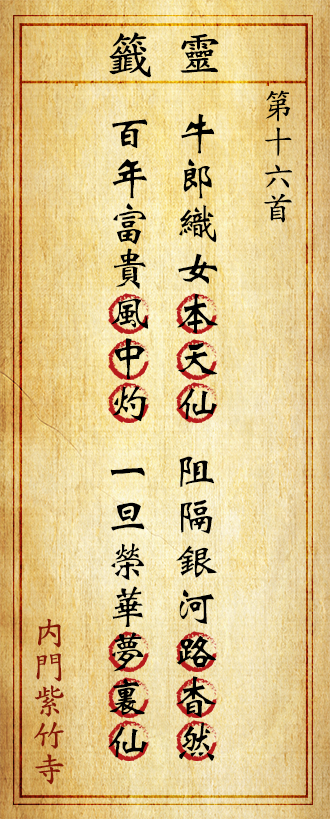 靈籤
第十六首
牛郎織女本天仙
阻隔銀河路杳然
百年富貴風中灼
一旦榮華夢裏仙
内門紫竹寺